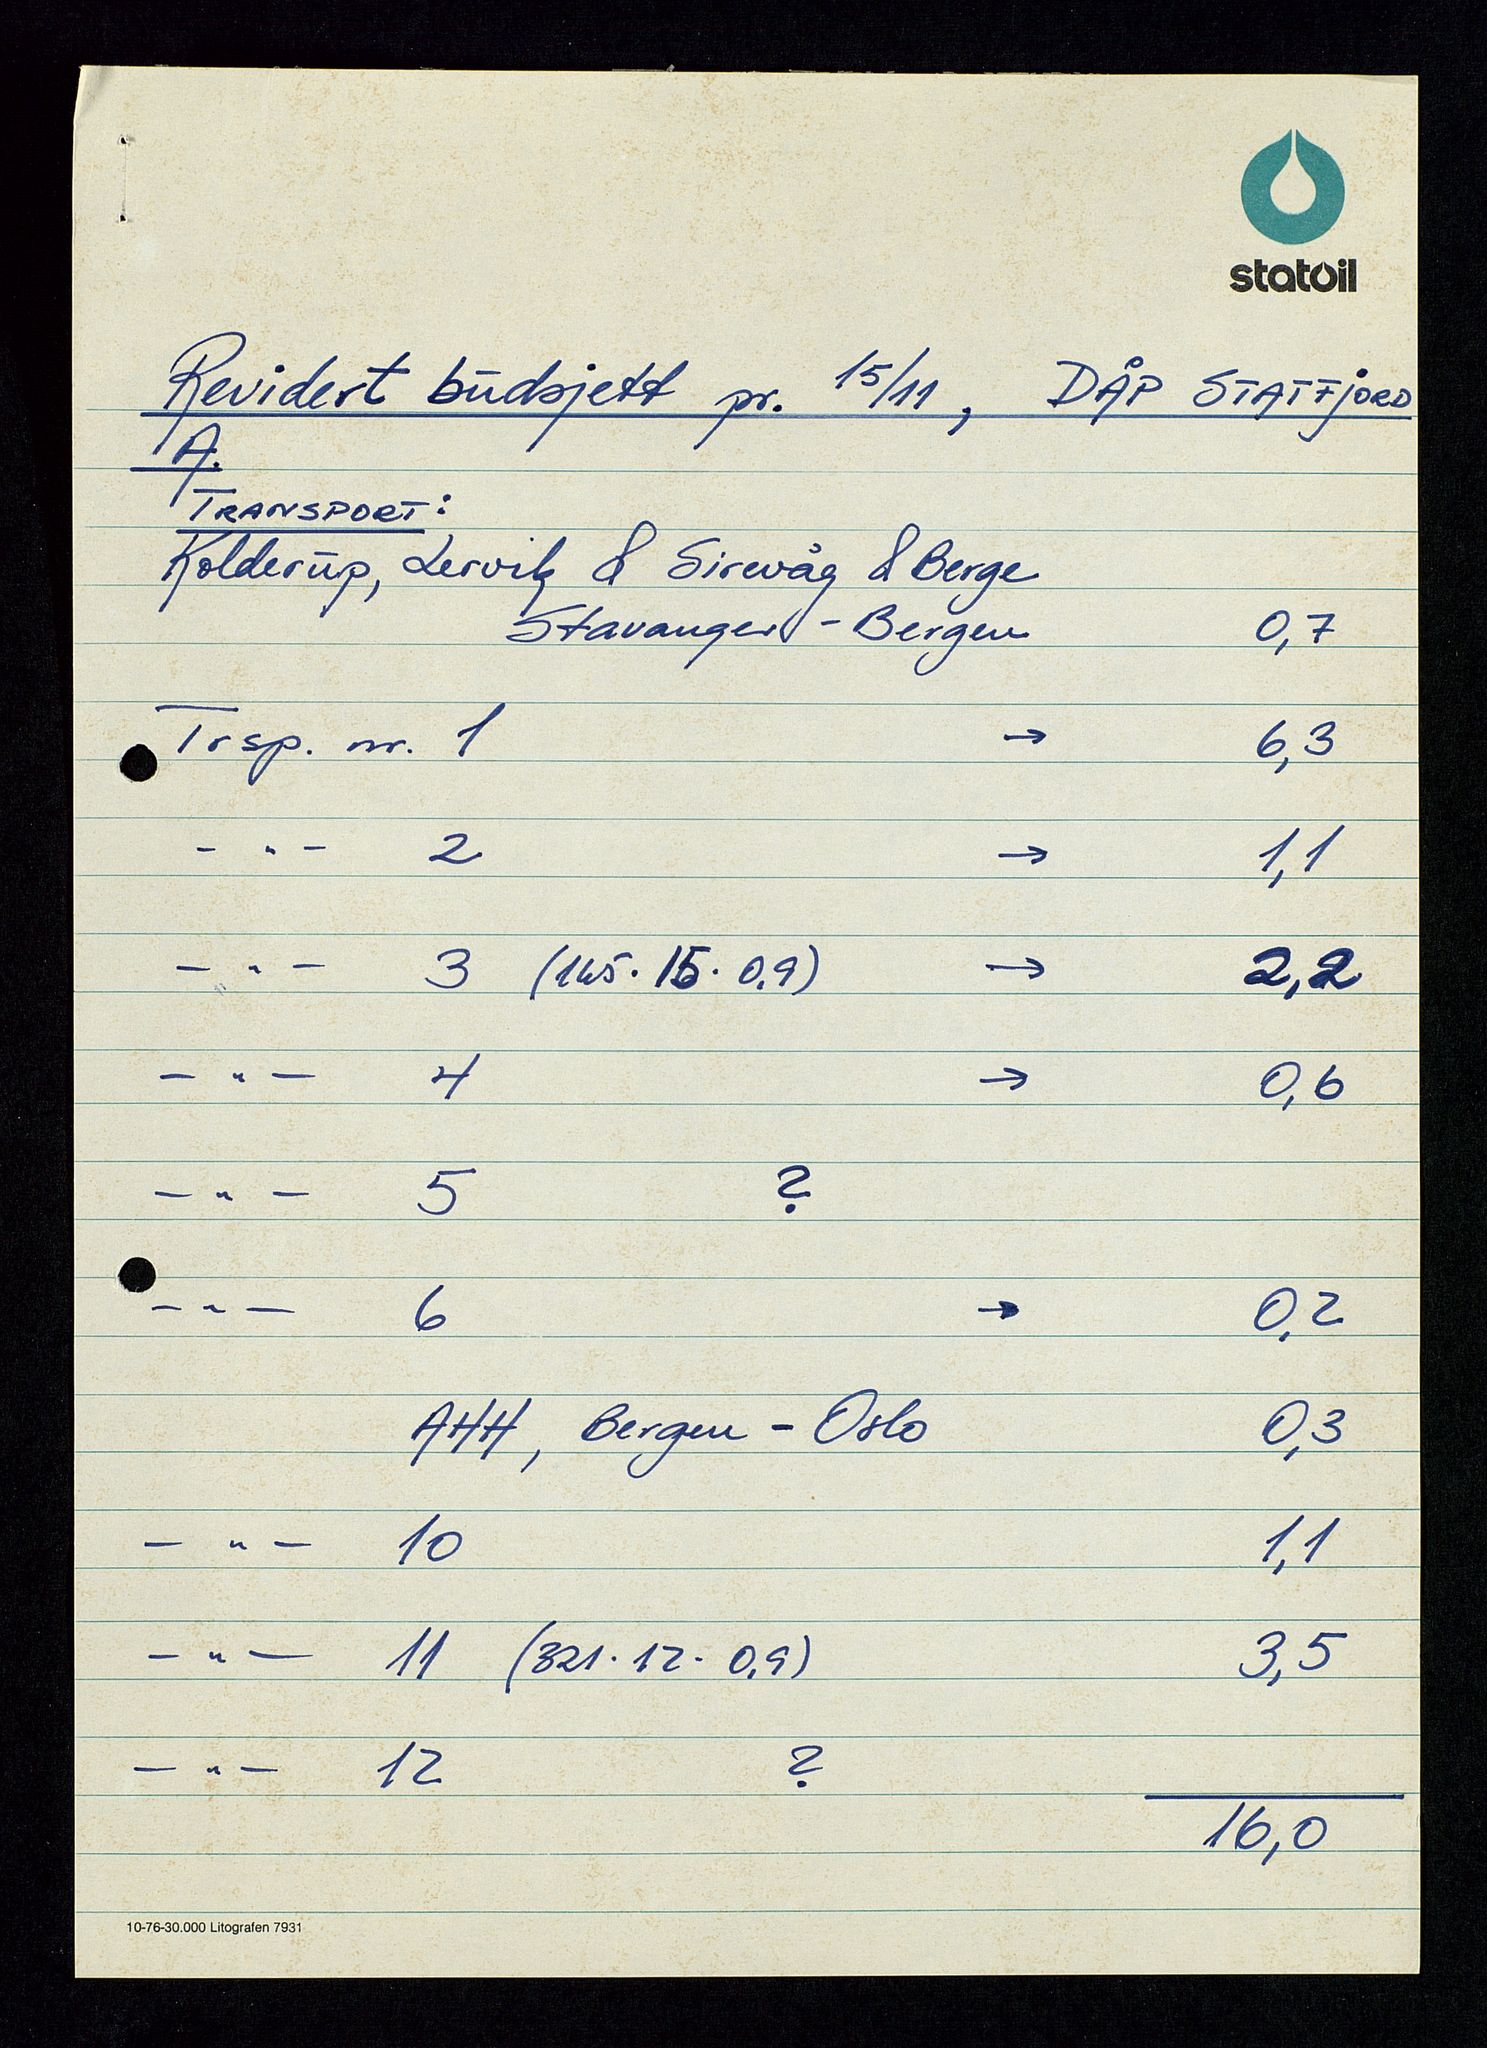 statoil
Revidert budsjett pr. 15/11, DÅP STATFJORD
A.
TRANSPORT:
Kolderup, Lervik & Sirevåg & Berge
Stavanger - Bergen 0,7
Trsp. nr. 1 → 6,3
- " - 2 → 1,1
- " - 3 (165 · 15 · 0,9) → 2,2
- " - 4 → 0,6
- " - 5 ?
- " - 6 → 0,2
AHH, Bergen - Oslo 0,3
- " - 10 1,1
- " - 11 (321 · 12 · 0,9) 3,5
- " - 12 ?
16,0
10-76-30.000 Litografen 7931